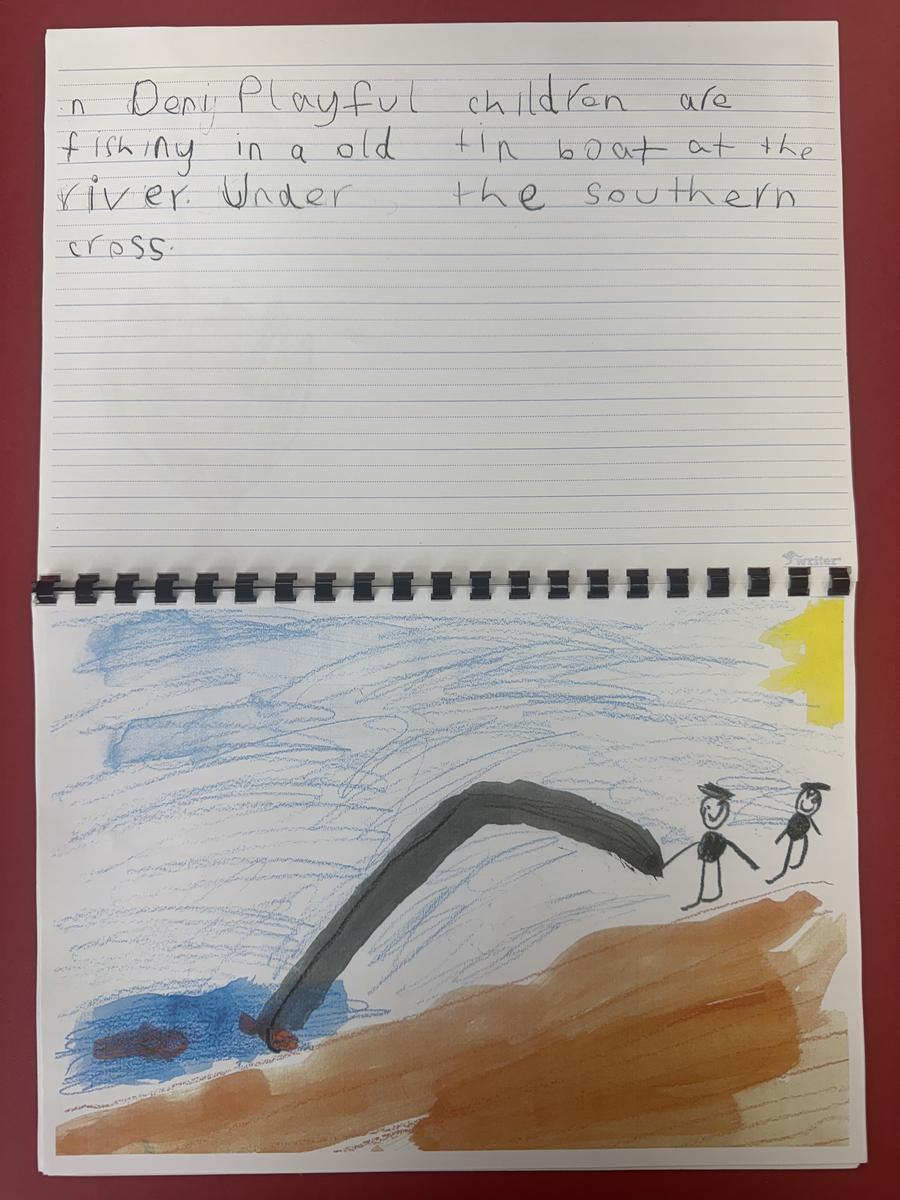 n Deni Playful children are
fishing in a old tin boat at the
river. Under the southern
cross.
writer